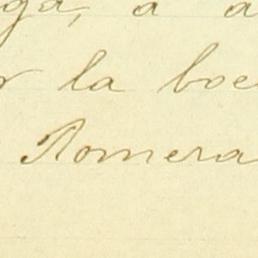 ga, a a
r la boe
Romera